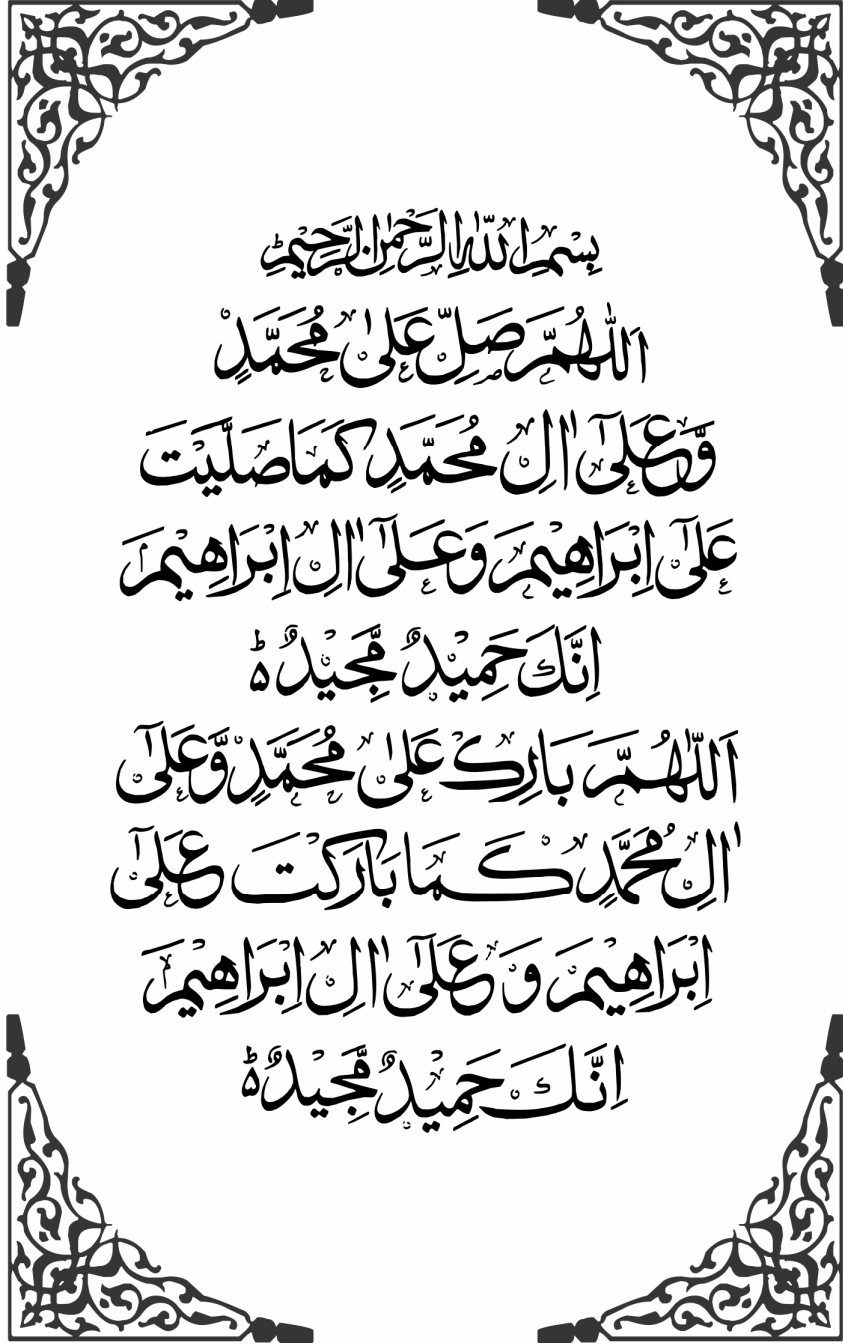 بِسْمِ اللّٰهِ الرَّحْمٰنِ الرَّحِيْمِ ؕ
اَللّٰهُمَّ صَلِّ عَلٰى مُحَمَّدٍ
وَّعَلٰٓى اٰلِ مُحَمَّدٍ كَمَا صَلَّيْتَ
عَلٰٓى اِبْرَاهِيْمَ وَعَلٰٓى اٰلِ اِبْرَاهِيْمَ
اِنَّكَ حَمِيْدٌ مَّجِيْدٌ ؕ۵
اَللّٰهُمَّ بَارِكْ عَلٰى مُحَمَّدٍ وَّعَلٰٓى
اٰلِ مُحَمَّدٍ كَمَا بَارَكْتَ عَلٰٓى
اِبْرَاهِيْمَ وَعَلٰٓى اٰلِ اِبْرَاهِيْمَ
اِنَّكَ حَمِيْدٌ مَّجِيْدٌ ؕ۵